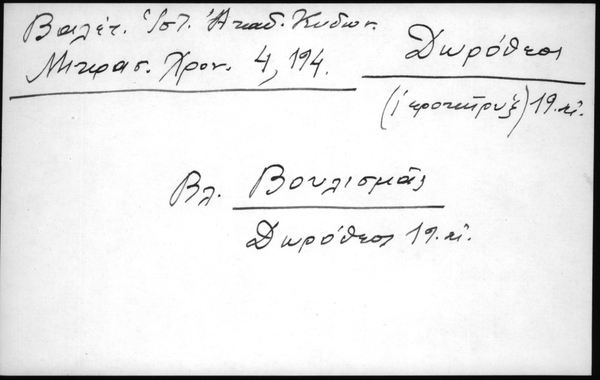 Βαλέτ. Ἱστ. Ἀκαδ. Κυδων.
Μικρασ. Χρον. 4, 194.
Δωρόθεος
(ἱεροκήρυξ) 19. αἰ.
Βλ. Βουλισμᾶς
Δωρόθεος 19. αἰ.